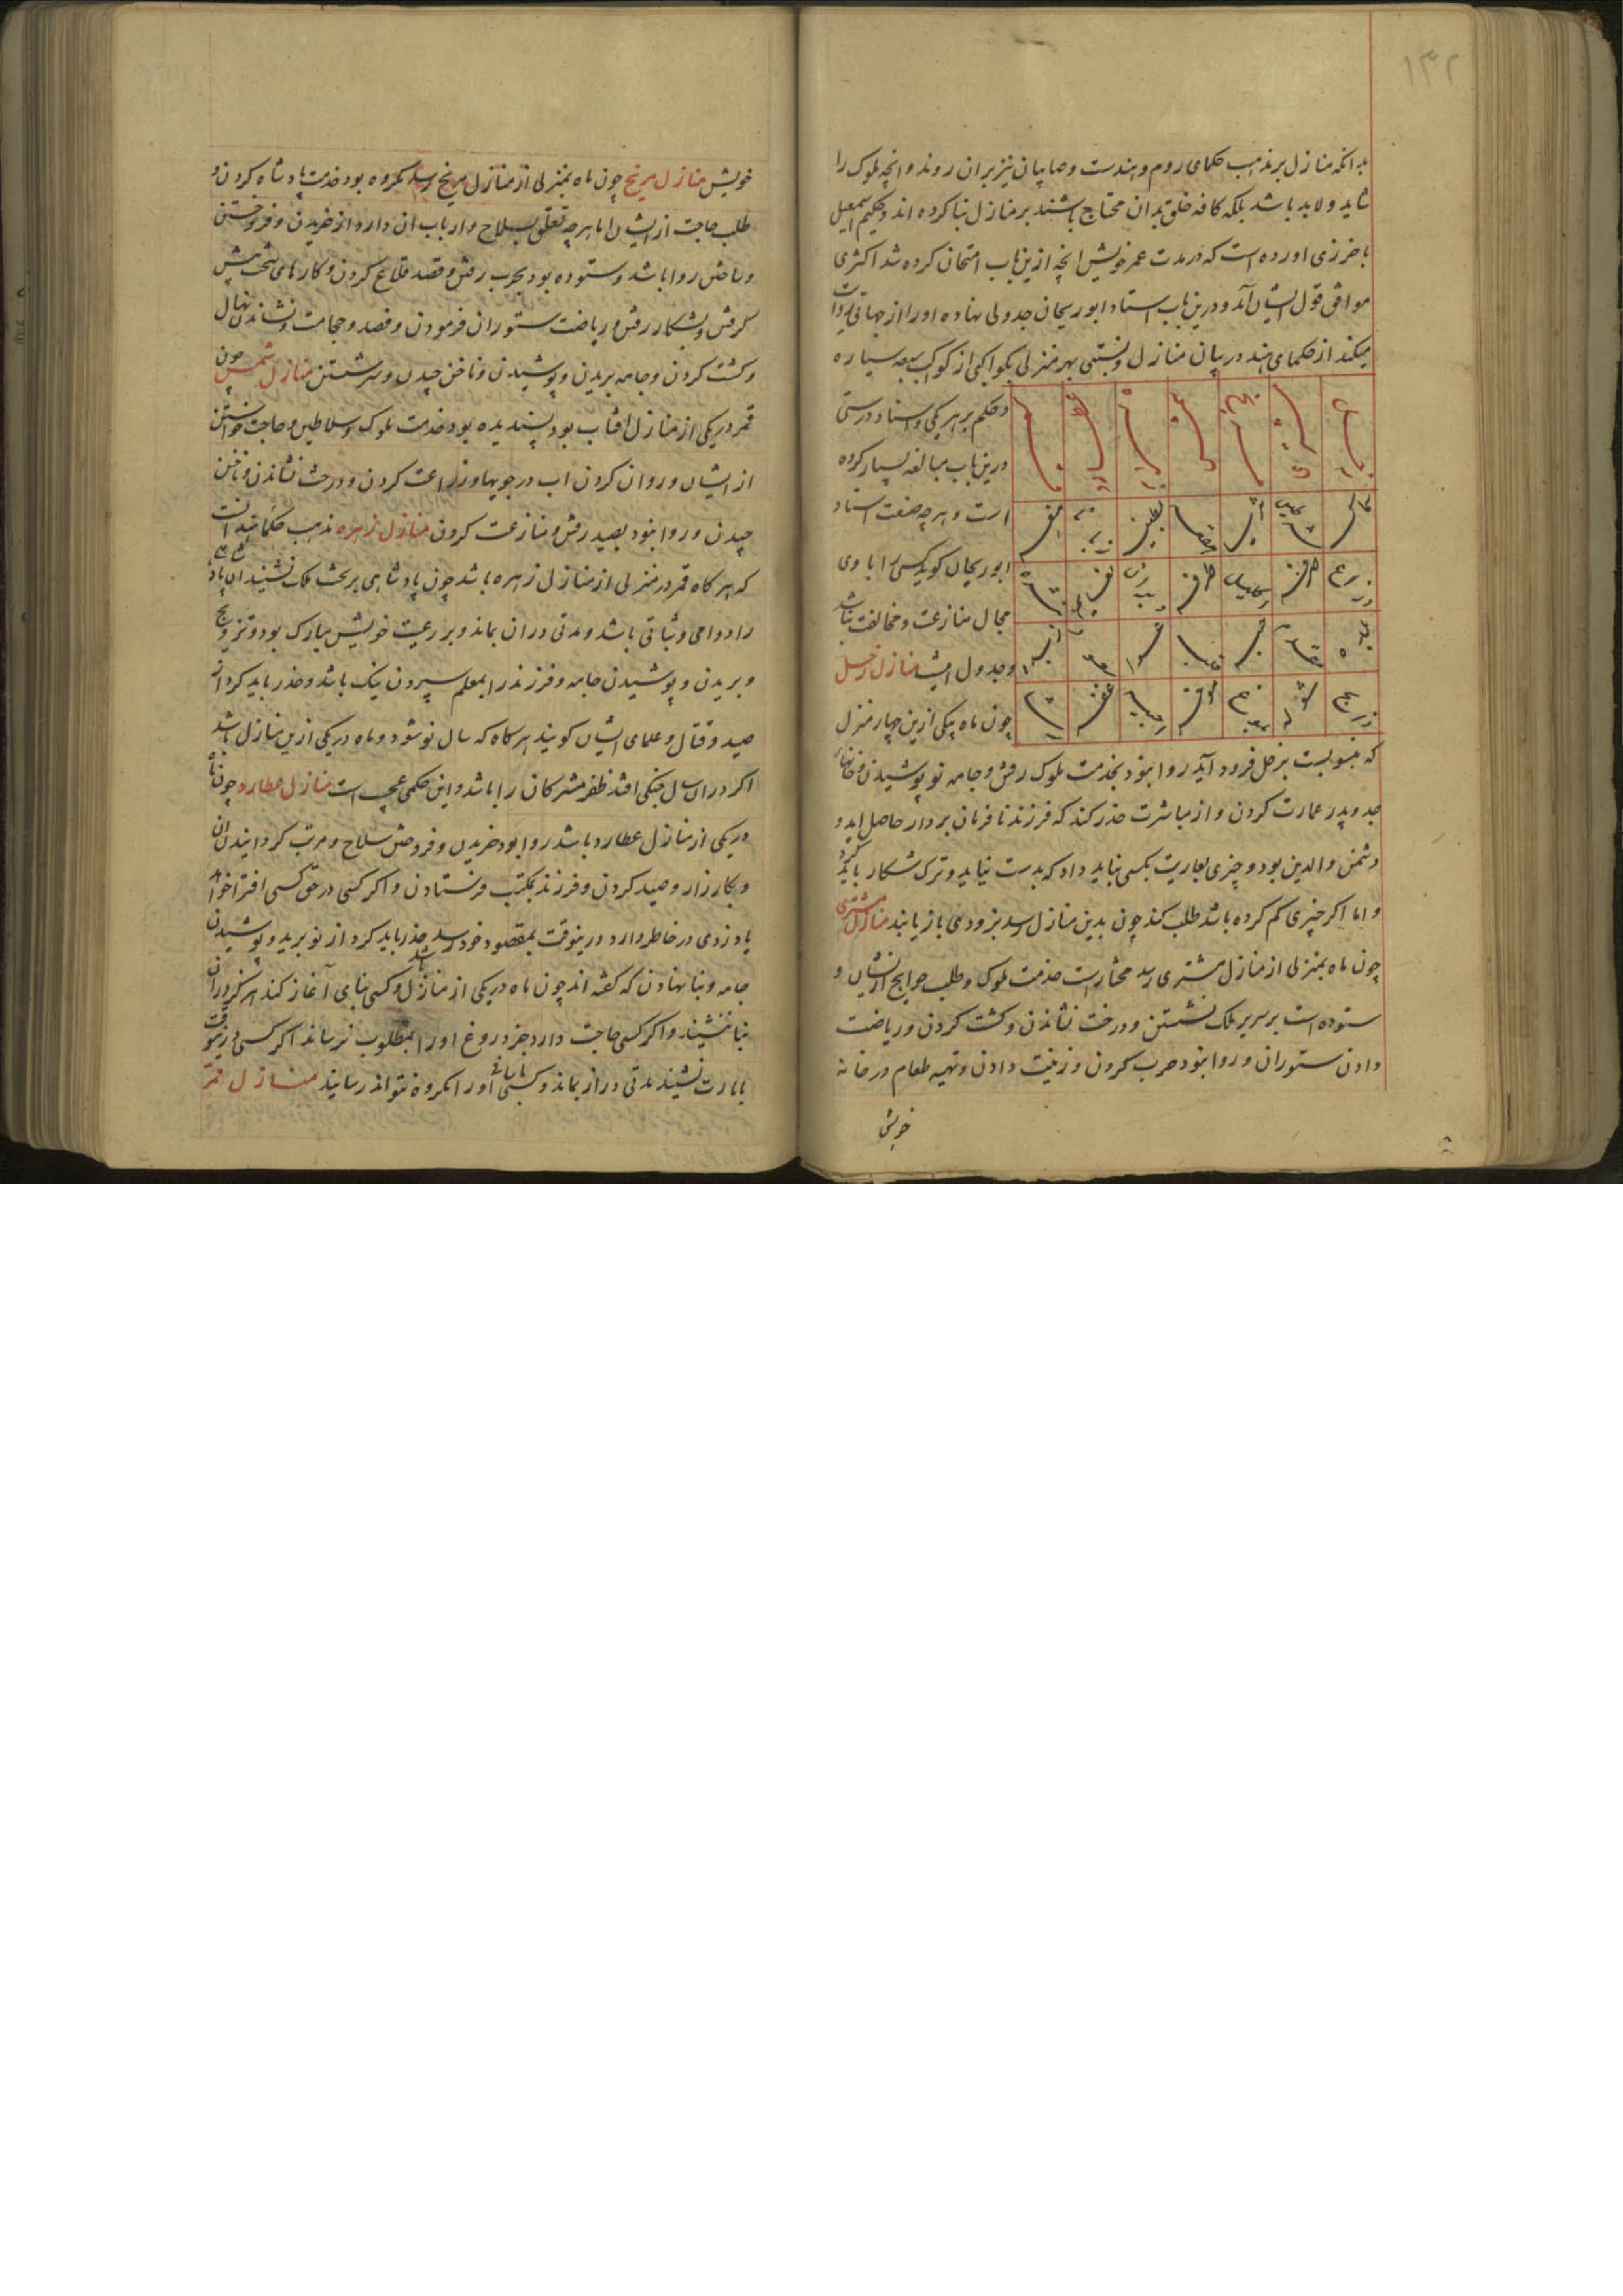 ۱۳۲
بدانکه منازل بر مذهب حکمای روم و هندست و صابیان نیز بران روند و انچه ملوک را
شاید و لابد باشد بلکه کافه خلق بدان محتاج باشند بر منازل بنا کرده اند و حکیم اسمعیل
باخرزی اورده است که در مدت عمر خویش انچه ازین باب امتحان کرده شد اکثری
موافق قول ایشان آمد و درین باب استاد ابوریحان جدولی نهاده او را از جهانی روایت
میکند از حکمای هند در بیان منازل و نسبتی بهر منزلی بکواکبی از کواکب سبعه سیاره
و حکم بر هر یکی و استاد درستی
درین باب مبالغه بسیار کرده
است و هر چه صنعت استاد
ابوریحان کوید کسی را با وی
مجال منازعت و مخالفت نباشد
و جدول اینست منازل زحل
چون ماه بیکی ازین چهار منزل
که منسوبست بزحل فرود آید روا نبود بخدمت ملوک رفتن و جامه نو پوشیدن و خانهاء
جد و پدر عمارت کردن و از مباشرت حذر کند که فرزند نافرمان بردار حاصل اید و
دشمن والدین بود و چیزی بعاریت بکسی نباید داد که بدست نیاید و ترک شکار باید کرد
و اما اکر چیزی کم کرده باشد طلب کند چون بدین منازل رسد بزودی باز یابند منازل مشتری
چون ماه بمنزلی از منازل مشتری رسد مختارست خدمت ملوک و طلب حوایج از ایشان و
ستوده است بر سریر ملک نشستن و درخت نشاندن و کشت کردن و ریاضت
دادن ستوران و روا نبود حرب کردن و زینت دادن و تهیه طعام در خانه
خویش
خویش منازل مریخ چون ماه بمنزلی از منازل مریخ رسد مکروه بود خدمت پادشاه کردن و
طلب حاجت از ایشان اما هر چه تعلق بسلاح و ارباب ان دارد از خریدن و فروختن
و ساختن روا باشد و ستوده بود بحرب رفتن و قصد قلاع کردن و کارهای سخت پیش
کرفتن و بشکار رفتن و ریاضت ستوران فرمودن و فصد و حجامت و نشاندن نهال
و کشت کردن و جامه بریدن و پوشیدن و ناخن چیدن و سر شستن منازل شمس چون
قمر در یکی از منازل افتاب بود پسندیده بود خدمت ملوک و سلاطین و حاجت خواستن
از ایشان و روان کردن اب در جویها و زراعت کردن و درخت نشاندن و ناخن
چیدن و روا نبود بصید رفتن و منازعت کردن منازل زهره مذهب حکما هند انست
که هر کاه قمر در منزلی از منازل زهره باشد چون پادشاهی بر تخت ملک نشیند ان پادشاهی
را دوامی و ثباتی باشد و مدتی دران بماند و بر رعیت خویش مبارک بود و تزویج
و بریدن و پوشیدن جامه و فرزند را بمعلم سپردن نیک باشد و حذر باید کرد از
صید و قتال و علمای ایشان کویند هر کاه که سال نو شود و ماه در یکی ازین منازل باشد
اکر دران سال جنکی افتد ظفر مشرکان را باشد و این حکمی عجیب است منازل عطارد چون ماه
در یکی از منازل عطارد باشد روا بود خریدن و فروختن سلاح و مرتب کردانیدن ان
و بکارزار و صید کردن و فرزند بمکتب فرستادن و اکر کسی در حق کسی افترا خواهد
یا دزدی در خاطر دارد درینوقت بمقصود خود رسد حذر باید کرد از نو برید و پوشیدن
جامه و بنا نهادن که کفته اند چون ماه در یکی از منازل باشد و کسی بنای آغاز کند هرکز دران
بنا ننشیند و اکر کسی حاجت دارد جز دروغ او را بمطلوب نرساند اکر کسی درینوقت
بامارت نشیند مدتی دراز بماند و کسی او را مکروه نتواند رسانید منازل قمر